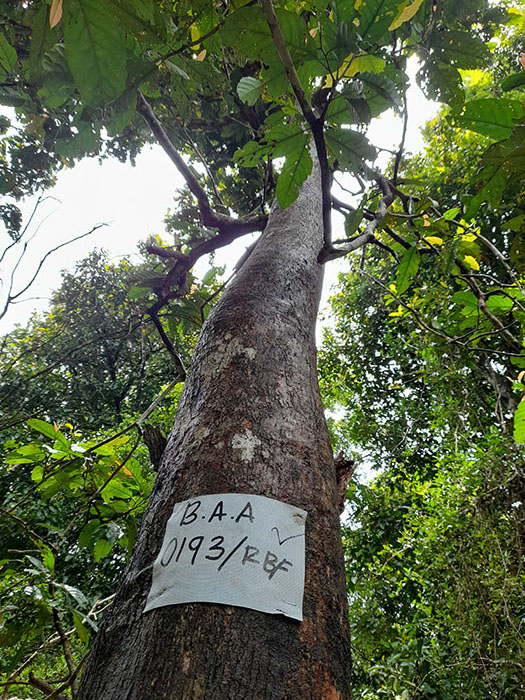 B.A.A
0193/RBF